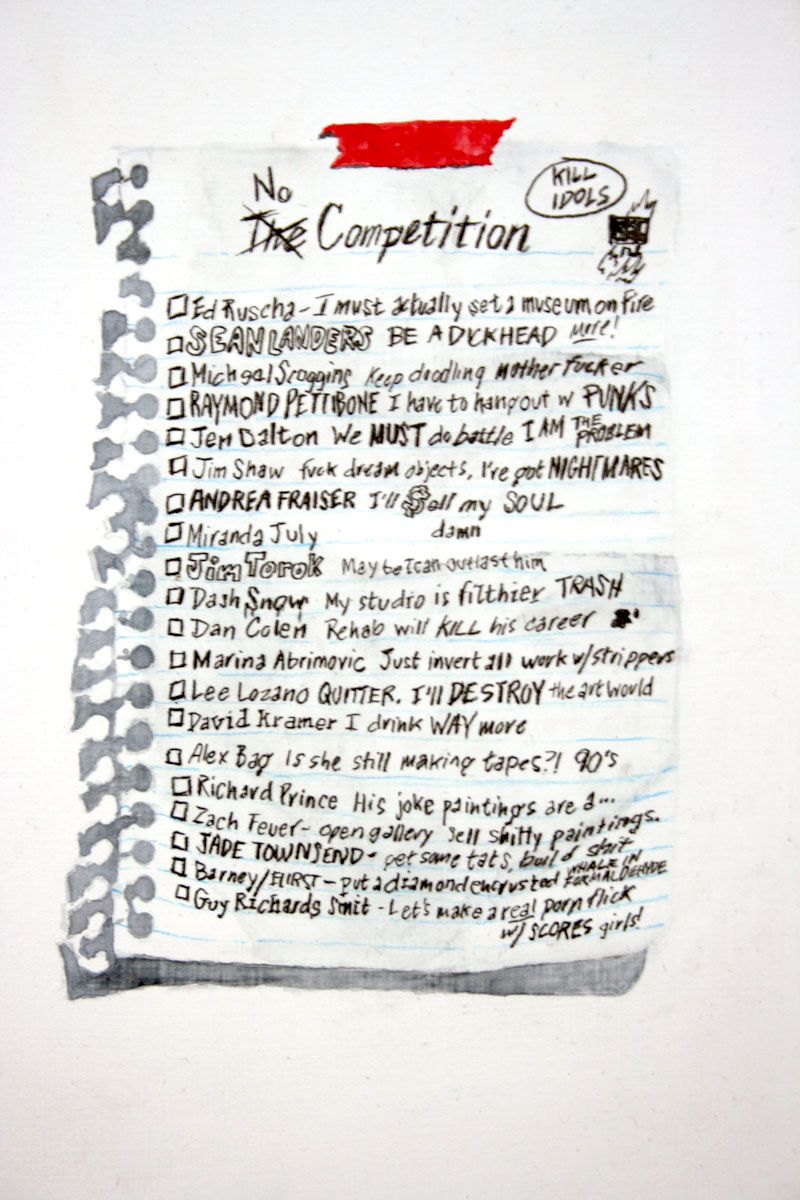 No
The Competition
KILL
IDOLS
Ed Ruscha - I must actually set a museum on fire
SEAN LANDERS BE A DICKHEAD More!
Micheal Scoggins Keep doodling mother fucker
RAYMOND PETTIBONE I have to hang out w PUNKS
Jen Dalton We MUST do battle I AM THE PROBLEM
Jim Shaw fuck dream objects, I've got NIGHTMARES
ANDREA FRAISER I'll Sell my SOUL
Miranda July damn
Jim Torok Maybe I can outlast him
Dash Snow My studio is filthier TRASH
Dan Colen Rehab will KILL his career
Marina Abrimovic Just invert all work w/strippers
Lee Lozano QUITTER. I'll DESTROY the art world
David Kramer I drink WAY more
Alex Bag Is she still making tapes?! 90's
Richard Prince His joke paintings are a...
Zach Feuer - open gallery sell shitty paintings.
JADE TOWNSEND - get some tats, build shit
Barney/HIRST - put a diamond encrusted WHALE IN FORMALDEHYDE
Guy Richards Smit - Let's make a real porn flick
w/ SCORES girls!